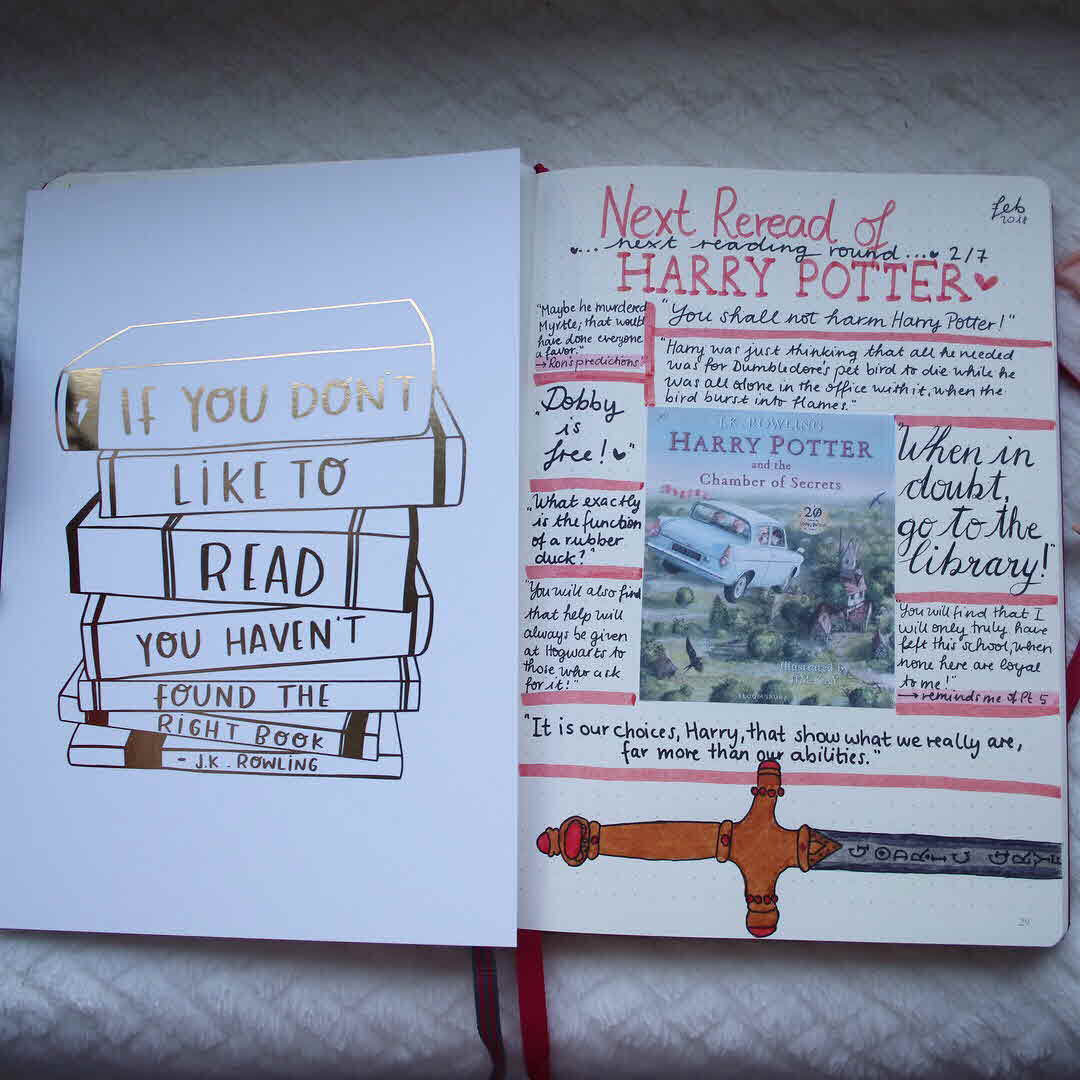 IF YOU DON'T
LIKE TO
READ
YOU HAVEN'T
FOUND THE
RIGHT BOOK
- J.K. ROWLING
Next Reread of
... next reading round... 2/7
HARRY POTTER
Feb
2018
"Maybe he murdered
Myrtle; that would
have done everyone
a favor."
→ Ron's predictions
"Dobby
is
free!"
"What exactly
is the function
of a rubber
duck?"
"You will also find
that help will
always be given
at Hogwarts to
those who ask
for it!"
"You shall not harm Harry Potter!"
"Harry was just thinking that all he needed
was for Dumbledore's pet bird to die while he
was all alone in the office with it, when the
bird burst into flames."
J.K. ROWLING
HARRY POTTER
and the
Chamber of Secrets
20
Illustrated by
BLOOMSBURY
"When in
doubt,
go to the
library!"
"You will find that I
will only truly have
left this school, when
none here are loyal
to me!"
→ reminds me of Pt 5
"It is our choices, Harry, that show what we really are,
far more than our abilities."
GODRIC GRYF
29